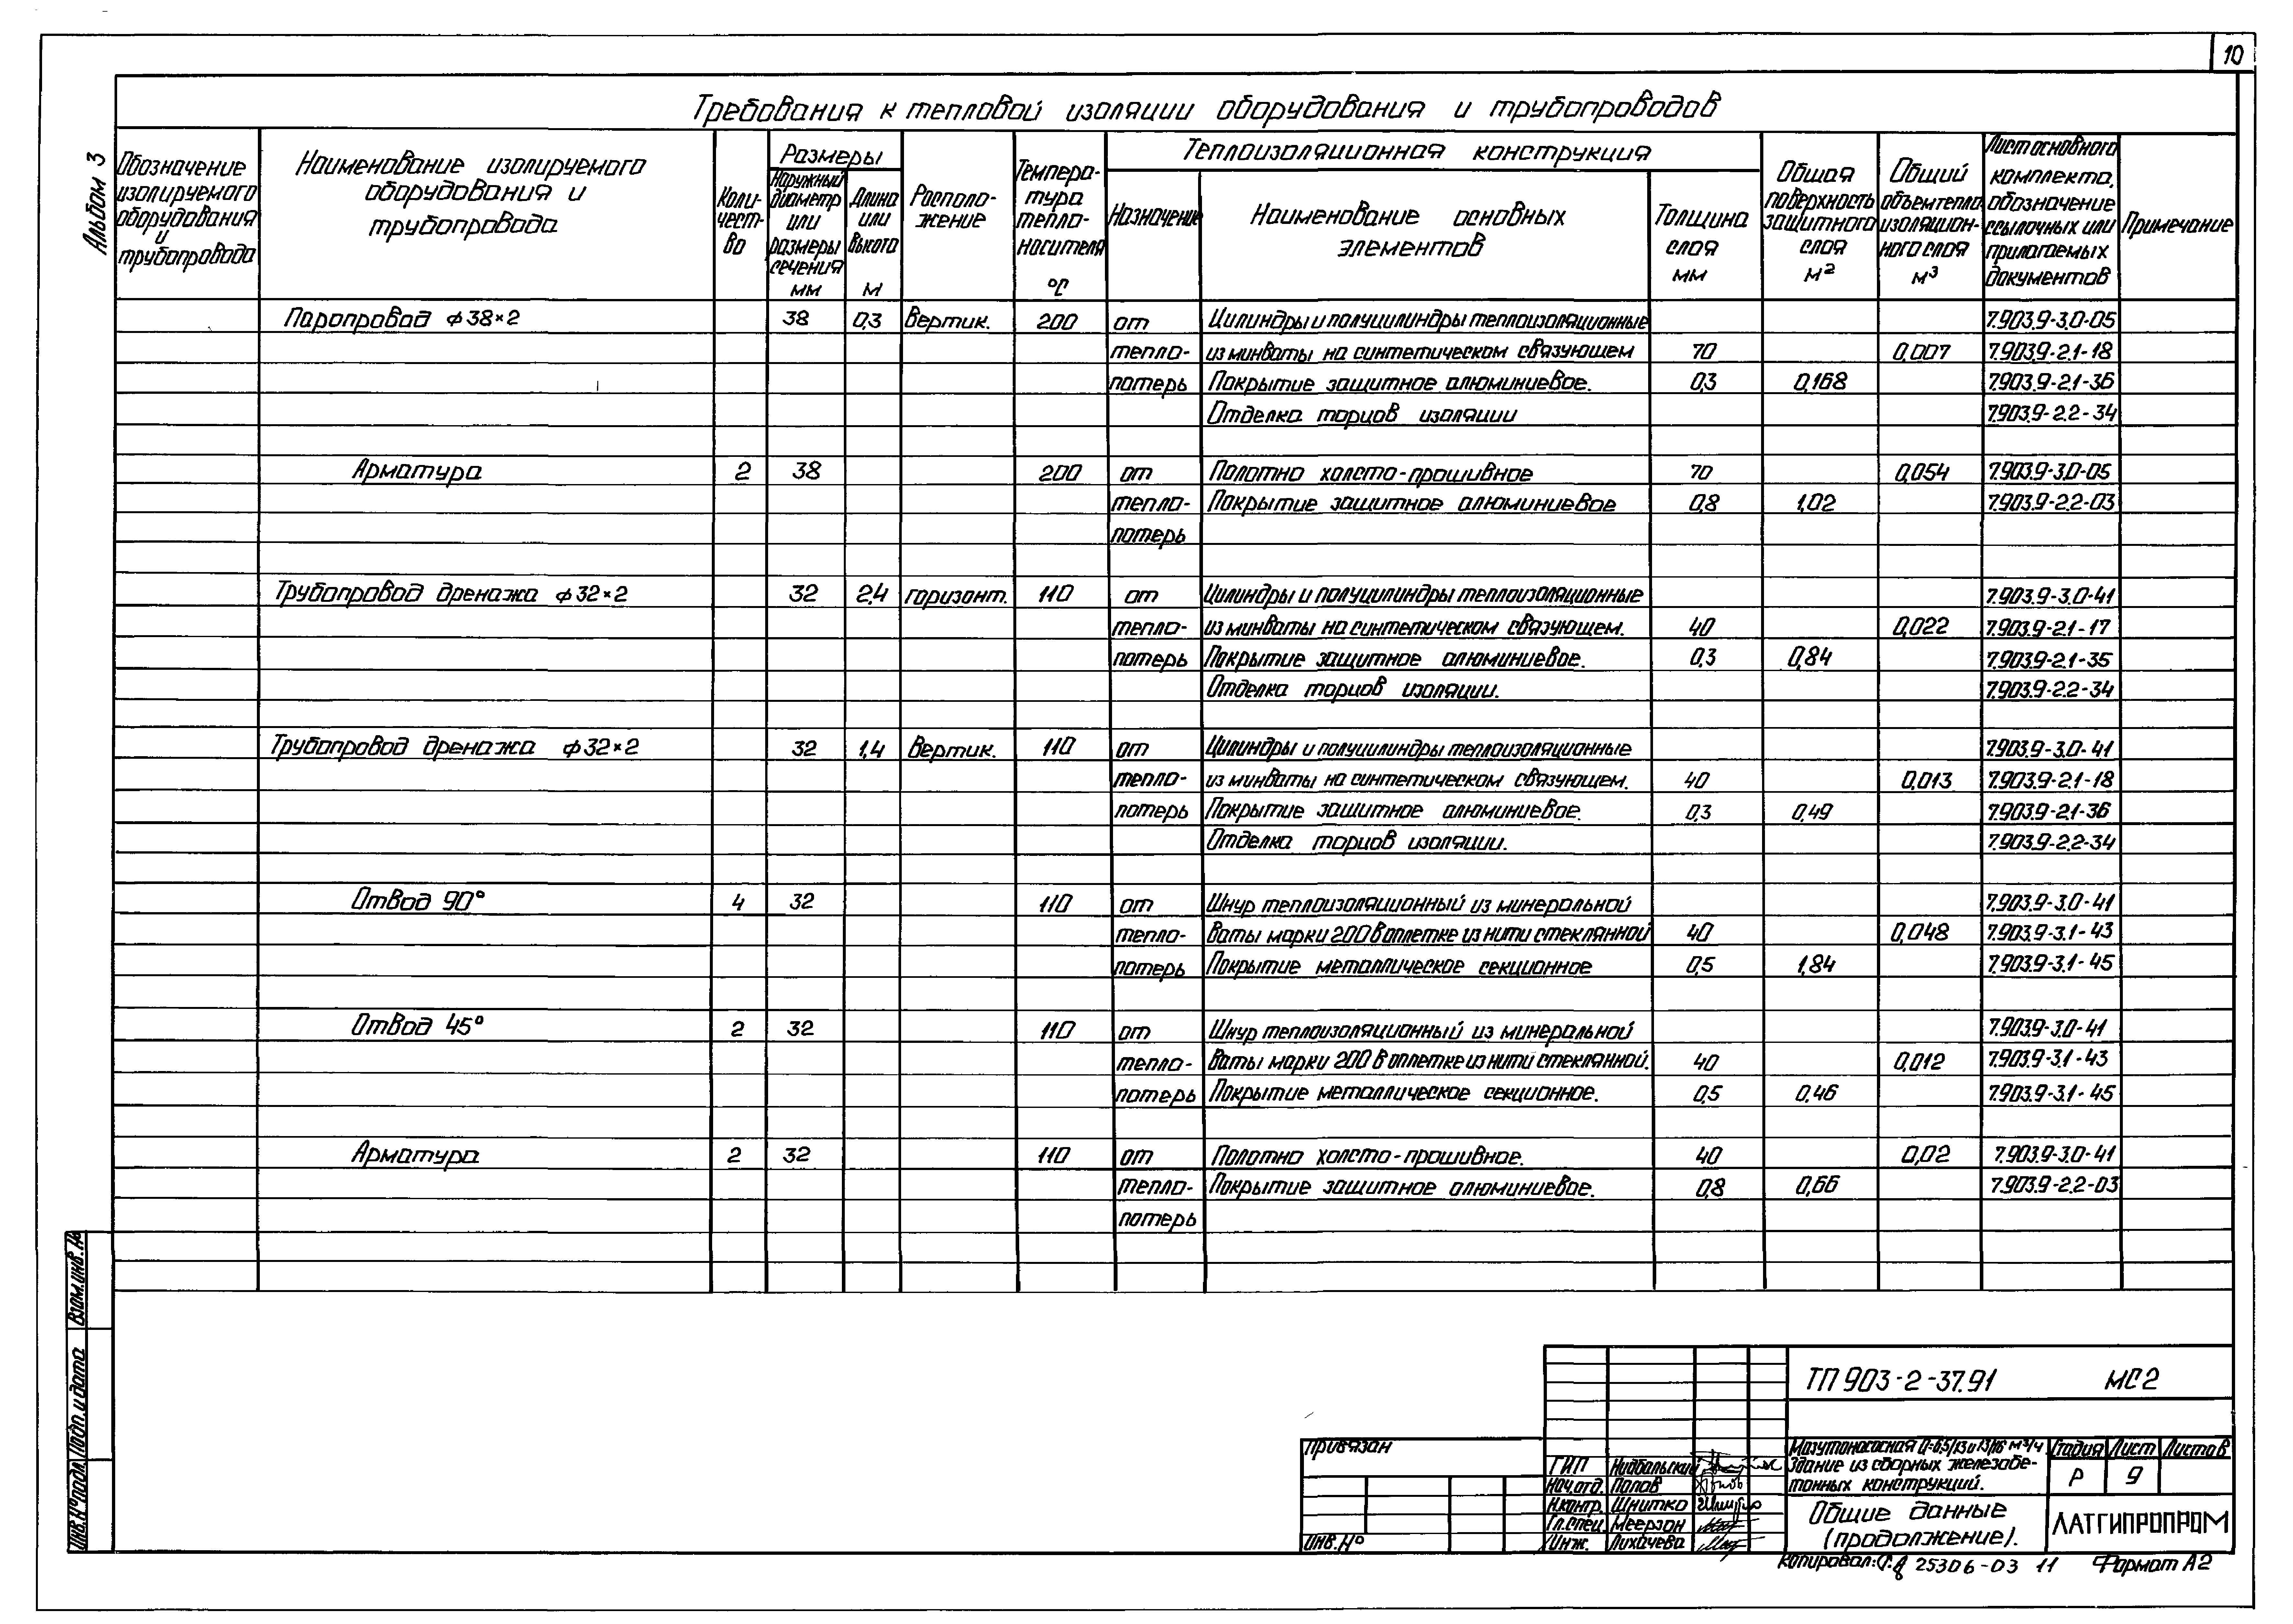 10
Альбом 3
Требования к тепловой изоляции оборудования и трубопроводов
Обозначение изолируемого оборудования и трубопровода
Наименование изолируемого оборудования и трубопровода
Коли-чест-во
Размеры
Наружный диаметр или размеры сечения мм
Длина или высота м
Располо-жение
Темпера-тура тепло-носителя °С
Теплоизоляционная конструкция
Назначение
Наименование основных элементов
Толщина слоя мм
Общая поверхность защитного слоя м²
Общий объем тепло изоляцион-ного слоя м³
Лист основного комплекта, обозначение ссылочных или прилагаемых документов
Примечание
Паропровод ф38×2 38 0,3 Вертик. 200 от Цилиндры и полуцилиндры теплоизоляционные 7.903.9-3.0-05
тепло- из минваты на синтетическом связующем 70 0,007 7.903.9-2.1-18
потерь Покрытие защитное алюминиевое. 0,3 0,168 7.903.9-2.1-36
Отделка торцов изоляции 7.903.9-2.2-34
Арматура 2 38 200 от Полотно холсто-прошивное 70 0,054 7.903.9-3.0-05
тепло- Покрытие защитное алюминиевое 0,8 1,02 7.903.9-2.2-03
потерь
Трубопровод дренажа ф32×2 32 2,4 горизонт. 110 от Цилиндры и полуцилиндры теплоизоляционные 7.903.9-3.0-41
тепло- из минваты на синтетическом связующем. 40 0,022 7.903.9-2.1-17
потерь Покрытие защитное алюминиевое. 0,3 0,84 7.903.9-2.1-35
Отделка торцов изоляции. 7.903.9-2.2-34
Трубопровод дренажа ф32×2 32 1,4 Вертик. 110 от Цилиндры и полуцилиндры теплоизоляционные 7.903.9-3.0-41
тепло- из минваты на синтетическом связующем. 40 0,013 7.903.9-2.1-18
потерь Покрытие защитное алюминиевое. 0,3 0,49 7.903.9-2.1-36
Отделка торцов изоляции. 7.903.9-2.2-34
Отвод 90° 4 32 110 от Шнур теплоизоляционный из минеральной 7.903.9-3.0-41
тепло- ваты марки 200 в оплетке из нити стеклянной 40 0,048 7.903.9-3.1-43
потерь Покрытие металлическое секционное 0,5 1,84 7.903.9-3.1-45
Отвод 45° 2 32 110 от Шнур теплоизоляционный из минеральной 7.903.9-3.0-41
тепло- ваты марки 200 в оплетке из нити стеклянной. 40 0,012 7.903.9-3.1-43
потерь Покрытие металлическое секционное. 0,5 0,46 7.903.9-3.1-45
Арматура 2 32 110 от Полотно холсто-прошивное. 40 0,02 7.903.9-3.0-41
тепло- Покрытие защитное алюминиевое. 0,8 0,66 7.903.9-2.2-03
потерь
Взам.инв.№
Подп. и дата
Инв.№подл.
Привязан
Инв.№
ТП 903-2-37.91 МС2
Мазутонасосная Q=6,5/13 и 13/16 м³/ч
Здание из сборных железобе-
тонных конструкций.
Стадия Лист Листов
Р 9
ГИП Нидбальский
Нач.отд. Попов
Н.контр. Шнитко
Гл.спец. Меерзон
Инж. Лихачева
Общие данные
(продолжение).
ЛАТГИПРОПРОМ
Копировал: 25306-03 11 Формат А2